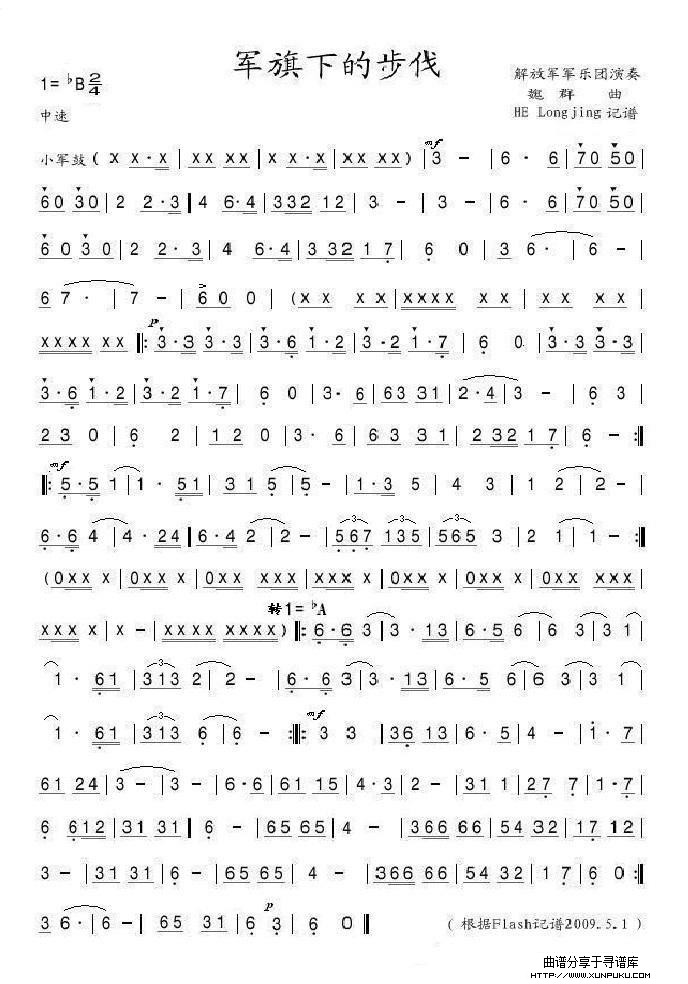 军旗下的步伐
1=♭B 2/4
解放军军乐团演奏
魏 群 曲
HE Longjing 记谱
中速
小军鼓 (X X·X | XX XX | X X·X | XX XX) | mf 3 - | 6· 6 | 70 50 |
60 30 | 2 2·3 | 4 6·4 | 332 12 | 3 - | 3 - | 6· 6 | 70 50 |
60 30 | 2 2·3 | 4 6·4 | 3 32 1 7 | 6 0 | 3 6· | 6 - |
6 7· | 7 - | 6 0 0 | (X X X X | XXXX XX | X X X X |
XXXX XX |: p 3·3 3·3 | 3·6 1·2 | 3·2 1·7 | 6 0 | 3·3 3·3 |
3·6 1·2 | 3·2 1·7 | 6 0 | 3· 6 | 63 31 | 2·4 3 | 3 - | 6 3 |
2 3 0 | 6 2 | 1 2 0 | 3· 6 | 6 3 3 1 | 2 32 1 7 | 6 - :|
|: mf 5·5 1 | 1· 51 | 3 1 5 | 5 - | 1·3 5 | 4 3 | 1 2 | 2 - |
6·6 4 | 4· 24 | 6·4 2 | 2 - | 567 135 | 565 3 | 2 1 | 1 - :|
(0XX X | 0XX X | 0XX XXX | XXX X | 0XX X | 0XX X | 0XX XXX |
转1=♭A
XXX X | X - | XXXX XXXX) |: 6·6 3 | 3· 13 | 6·5 6 | 6 3 | 3 1 |
1· 61 | 313 2 | 2 - | 6·6 3 | 3· 13 | 6·5 6 | 6 3 | 3 1 |
1· 61 | 313 6 | 6 - :|: mf 3 3 | 36 13 | 6·5 | 4 - | 1· 7 |
61 24 | 3 - | 3 - | 6·6 | 61 15 | 4·3 | 2 - | 31 1 | 27 7 | 1·7 |
6 612 | 31 31 | 6 - | 65 65 | 4 - | 366 66 | 54 32 | 1 7 | 17 12 |
3 - | 31 31 | 6 - | 65 65 | 4 - | 366 66 | 54 32 | 1 7 | 6 0 :|
3 6· | 6 - | 65 31 | 6 3 | p 6 0 | (根据Flash记谱2009.5.1)
曲谱分享于寻谱库
HTTP://WWW.XUNPUKU.COM